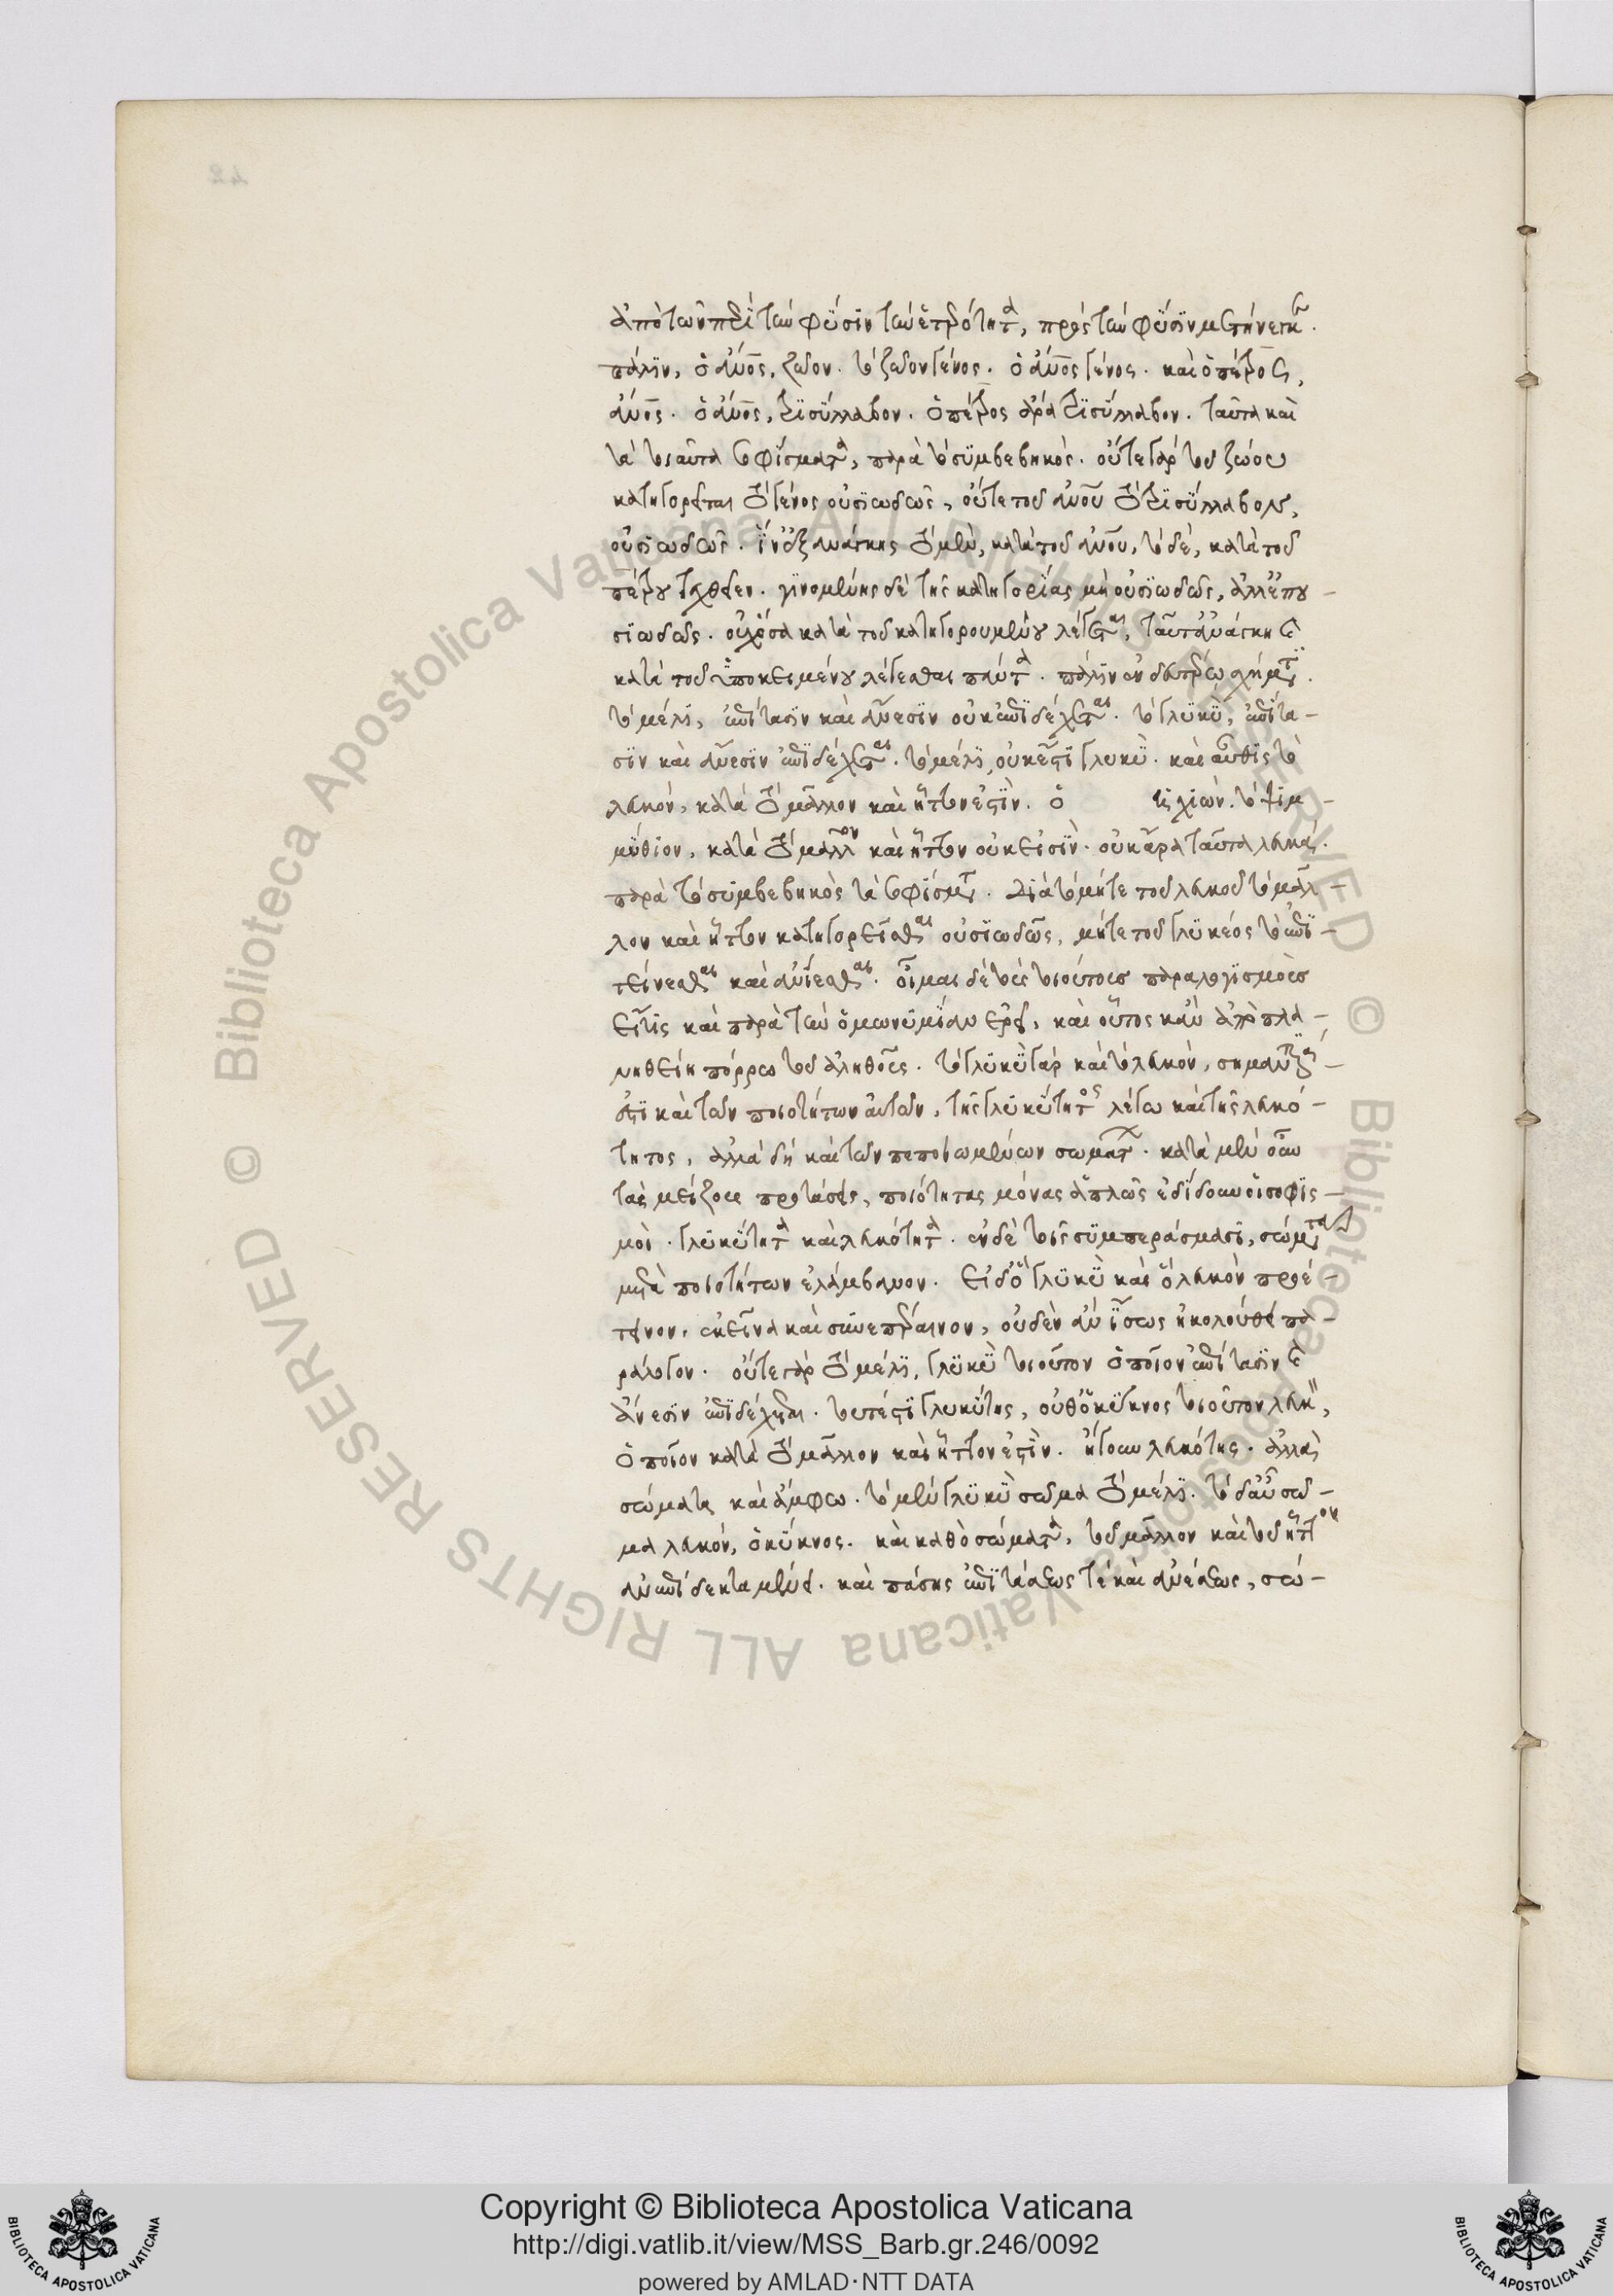 ἀπὸ τῶν περὶ τὴν φύσιν τὴν ἑτερότητα, πρὸς τὴν φύσιν μετήνεγκε.
πάλιν, ὁ ἄνος, ζῶον. τὸ ζῶον γένος. ὁ ἄνος γένος. καὶ ὁ πέτρος,
ἄνος. ὁ ἄνος, τρισύλλαβον. ὁ πέτρος ἄρα τρισύλλαβον. ταῦτα καὶ
τὰ τοιαῦτα σοφίσματα, παρὰ τὸ συμβεβηκός. οὔτε γὰρ τοῦ ζώου
κατηγορεῖται τὸ γένος οὐσιωδῶς, οὔτε τοῦ ἄνου τὸ τρισύλλαβον,
οὐσιωδῶς. ἵν' ἐξ ἀνάγκης τὸ μὲν, κατὰ τοῦ ἄνου, τὸ δὲ, κατὰ τοῦ
πέτρου ταχθείη. γινομένης δὲ τῆς κατηγορίας μὴ οὐσιωδῶς, ἀλλ' ἐπου-
σιωδῶς. οὐχ ὅσα κατὰ τοῦ κατηγορουμένου λέγεται, ταῦτ' ἀνάγκη καὶ
κατὰ τοῦ ὑποκειμένου λέγεσθαι πάντα. πάλιν ἐν δευτέρῳ σχήματι.
τὸ μέλι, ἐπίτασιν καὶ ἄνεσιν οὐκ ἐπιδέχεται. τὸ γλυκὺ, ἐπίτα-
σιν καὶ ἄνεσιν ἐπιδέχεται. τὸ μέλι, οὐκ ἔστι γλυκὺ. καὶ αὖθις τὸ
λευκὸν, κατὰ τὸ μᾶλλον καὶ ἧττον ἐστὶν. ὁ τῆς χιών. τὸ ψιμ-
μύθιον, κατὰ τὸ μᾶλλον καὶ ἧττον οὐκ εἰσὶν. οὐκ ἄρα ταῦτα λευκά.
παρὰ τὸ συμβεβηκὸς τὰ σοφίσματα. διὰ τὸ μήτε τοῦ λευκοῦ τὸ μᾶλ-
λον καὶ ἧττον κατηγορεῖσθαι οὐσιωδῶς, μήτε τοῦ γλυκέος τὸ ἐπι-
τείνεσθαι καὶ ἀνίεσθαι. οἶμαι δὲ τοὺς τοιούτους παραλογισμοὺς
εἴ τις καὶ παρὰ τὴν ὁμωνυμίαν ἐρεῖ, καὶ οὗτος κἂν ἀποπλα-
νηθείη πόρρω τοῦ ἀληθοῦς. τὸ γλυκὺ γὰρ καὶ τὸ λευκὸν, σημαντικά
ἐστι καὶ τῶν ποιοτήτων αὐτῶν, τῆς γλυκύτητος λέγω καὶ τῆς λευκό-
τητος, ἀλλὰ δὴ καὶ τῶν πεποιωμένων σωμάτων. κατὰ μὲν οὖν
τὰς μείζους προτάσεις, ποιότητας μόνας ἁπλῶς ἐδίδοσαν οἱ σοφισ-
μοὶ. γλυκύτητα καὶ λευκότητα. ἐν δὲ τοῖς συμπεράσμασι, σώματα
μετὰ ποιοτήτων ἐλάμβανον. εἰ δ' ὃ γλυκὺ καὶ ὃ λευκὸν προέ-
τεινον, ἐκεῖνα καὶ συνεπέραινον, οὐδὲν ἂν ἴσως ἠκολούθει πα-
ράλογον. οὔτε γὰρ τὸ μέλι, γλυκὺ τοιοῦτον ὁποῖον ἐπίτασιν καὶ
ἄνεσιν ἐπιδέχεται. τουτέστι γλυκύτης, οὔθ' ὁ κύκνος τοιοῦτον λευκὸν,
ὁποῖον κατὰ τὸ μᾶλλον καὶ ἧττον ἐστὶν. ἤγουν λευκότης. ἀλλὰ
σώματα καὶ ἄμφω. τὸ μὲν γλυκὺ σῶμα τὸ μέλι. τὸ δ' αὖ σῶ-
μα λευκὸν, ὁ κύκνος. καὶ καθὸ σώματα, τοῦ μᾶλλον καὶ τοῦ ἧττον
ἀνεπίδεκτα μένει. καὶ πάσης ἐπιτάσεώς τε καὶ ἀνέσεως, σώ-
Copyright © Biblioteca Apostolica Vaticana
http://digi.vatlib.it/view/MSS_Barb.gr.246/0092
powered by AMLAD·NTT DATA